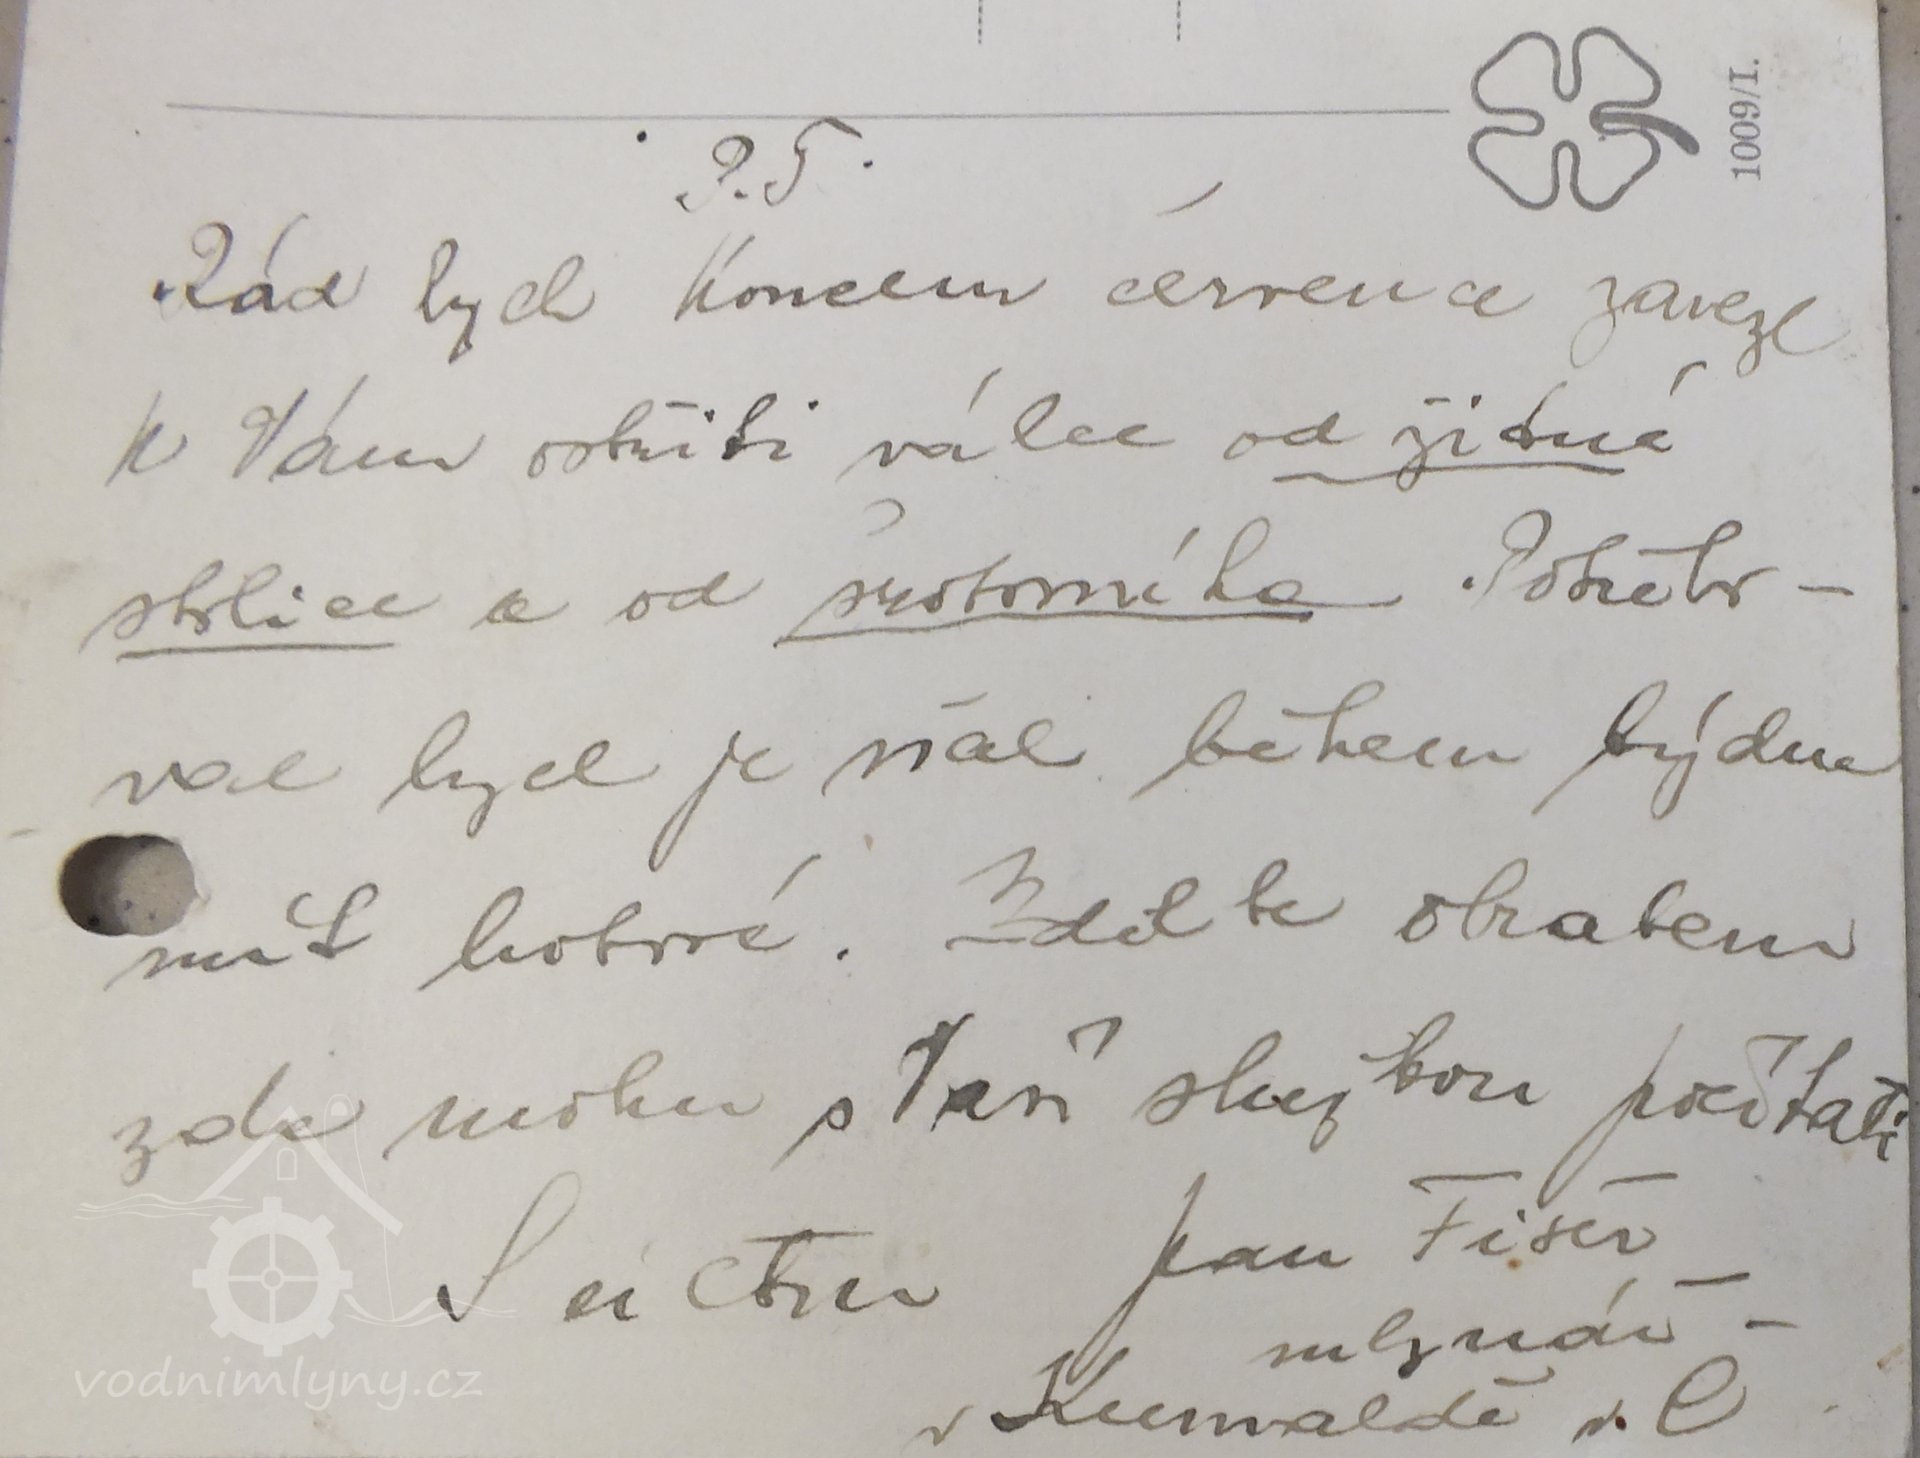 1009/I.
P. T.
Rád bych koncem července zavezl
k Vám ostřiti válce od žitné
stolice a od šrotovníka. Potřebo-
val bych je však během týdne
míti hotové. Sdělte obratem
zda mohu s Vaší službou počítati
S úctou Jan Fišer
mlynář -
v Kunvaldě v. Č
vodnimlyny.cz